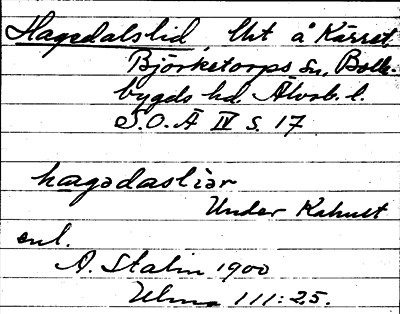 Hagedalslid, lht å Kärret
Björketorps sn, Bolle-
bygds hd. Älvsb. l.
S.O.Ä IV s. 17
hagadasliər
Under Kahult
enl.
A. Stalin 1900
Ulma 111:25.